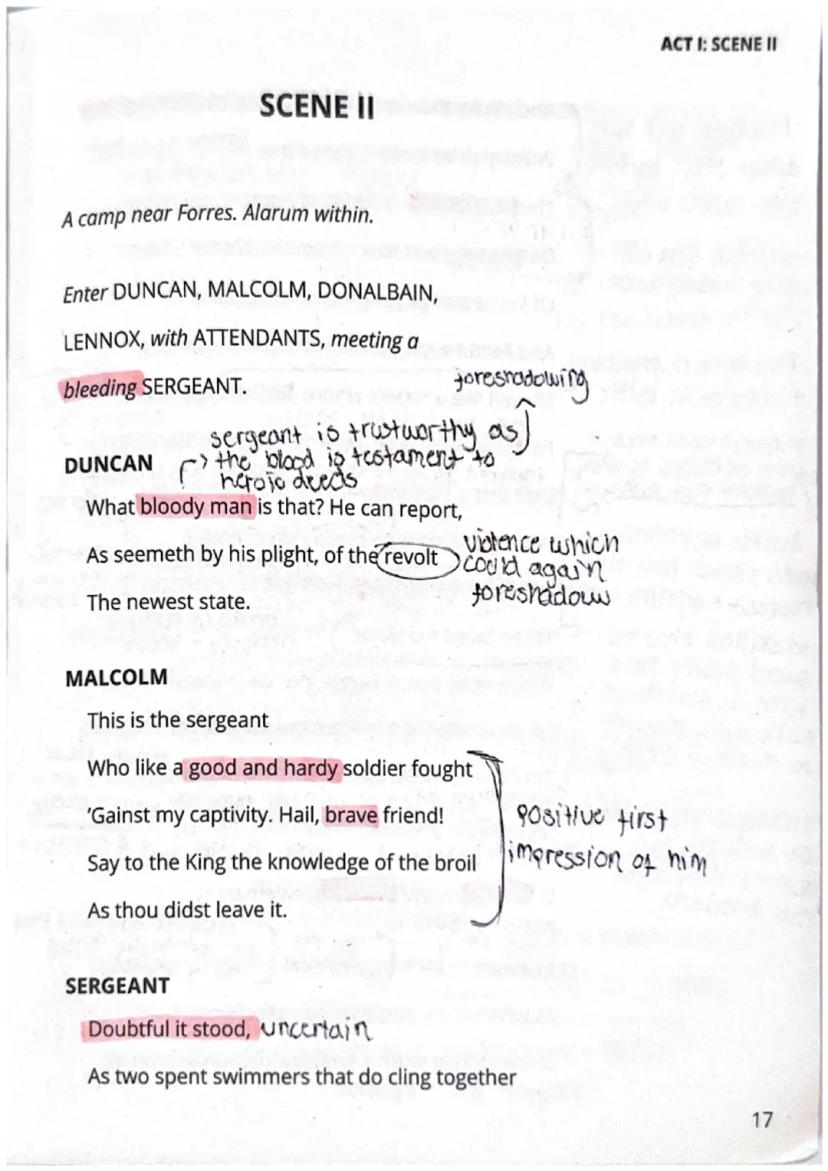 ACT I: SCENE II
SCENE II
A camp near Forres. Alarum within.
Enter DUNCAN, MALCOLM, DONALBAIN,
LENNOX, with ATTENDANTS, meeting a
bleeding SERGEANT.
foreshadowing
sergeant is trustworthy as
DUNCAN → the blood is testament to
heroic deeds
What bloody man is that? He can report,
As seemeth by his plight, of the revolt
violence which
could again
foreshadow
The newest state.
MALCOLM
This is the sergeant
Who like a good and hardy soldier fought
'Gainst my captivity. Hail, brave friend!
Say to the King the knowledge of the broil
As thou didst leave it.
positive first
impression of him
SERGEANT
Doubtful it stood, uncertain
As two spent swimmers that do cling together
17